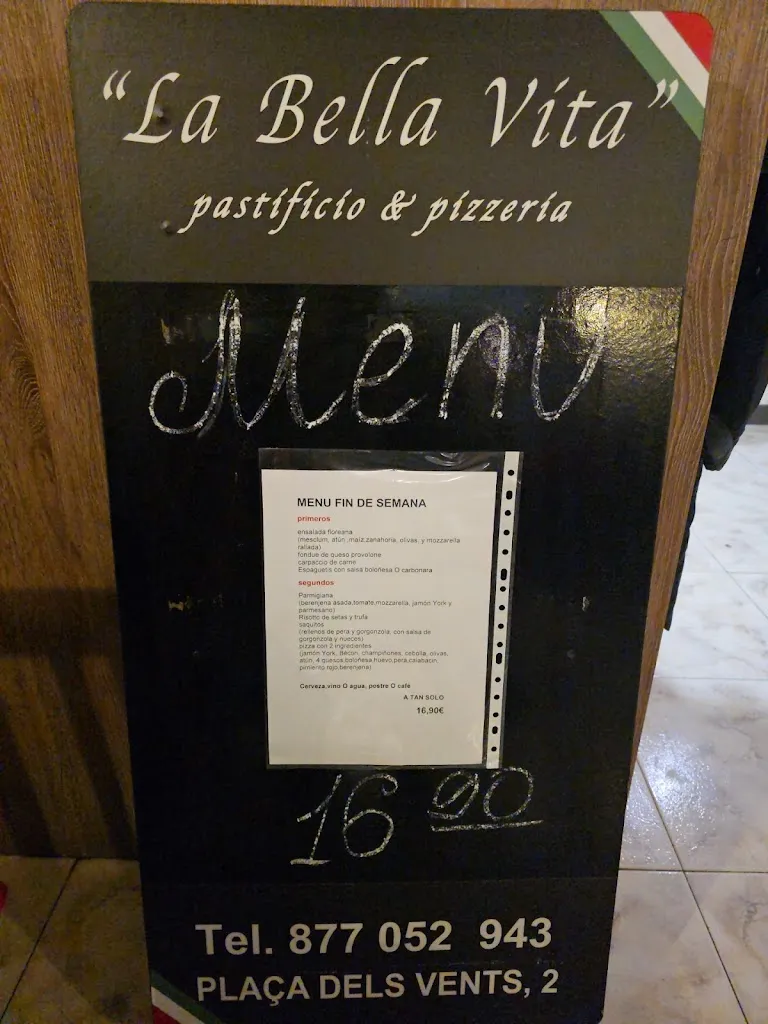 “La Bella Vita”
pastificio & pizzeria
Menu
MENU FIN DE SEMANA
primeros
ensalada floreana
(mesclum, atún ,maíz,zanahoria, olivas, y mozzarella
rallada)
fondue de queso provolone
carpaccio de carne
Espaguetis con salsa boloñesa O carbonara
segundos
Parmigiana
(berenjena asada,tomate,mozzarella, jamón York y
parmesano)
Risotto de setas y trufa
saquitos
(rellenos de pera y gorgonzola, con salsa de
gorgonzola y nueces)
pizza con 2 ingredientes
(jamón York, Bacon, champiñones, cebolla, olivas,
atún, 4 quesos,boloñesa,huevo,pera,calabacín,
pimiento rojo,berenjena)
Cerveza,vino O agua, postre O café
A TAN SOLO
16,90€
16 90
Tel. 877 052 943
PLAÇA DELS VENTS, 2